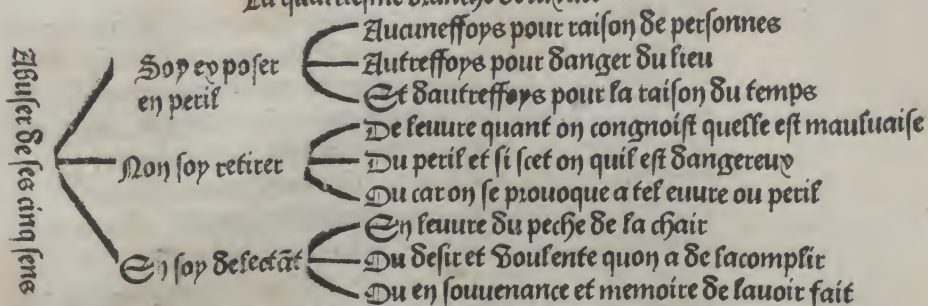 La quatriesme branche de luxure
Abuser de ses cinq sens
Soy exposer
en peril
Aucuneffoys pour raison de personnes
Autreffoys pour danger du lieu
Et dautreffoys pour la raison du temps
Non soy retirer
De leuure quant on congnoist quelle est mauluaise
Du peril et si scet on quil est dangereux
Ou car on se prouoque a tel euure ou peril
En soy delectāt
En leuure du peche de la chair
Ou desir et voulente quon a de lacomplir
Ou en souuenance et memoire de lauoir fait